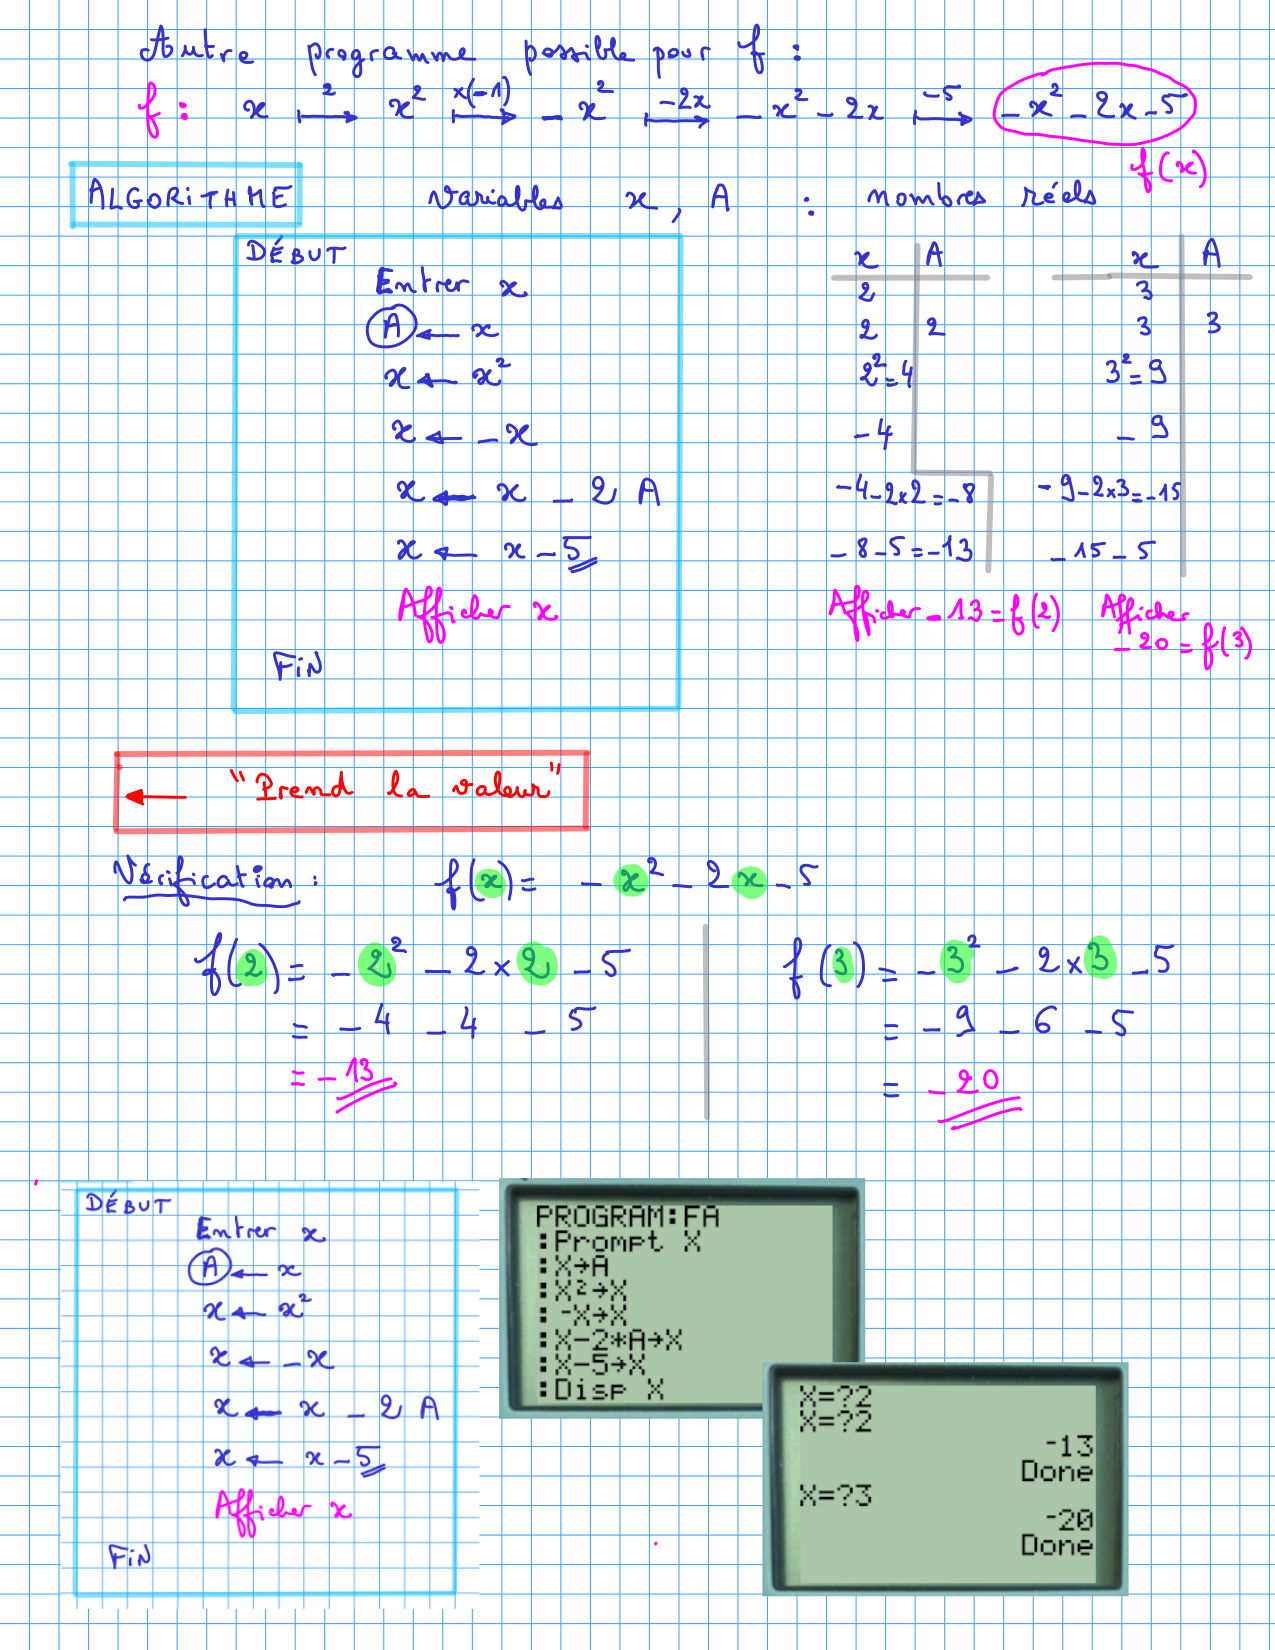 Autre programme possible pour f :
f : x ⟼ x² ⟼ - x² ⟼ - x² - 2x ⟼ - x² - 2x - 5
2 x(-1) -2x -5
f(x)
ALGORiTHME Variables x, A : nombres réels
DÉBUT
Entrer x
A ← x
x ← x²
x ← - x
x ← x - 2 A
x ← x - 5
Afficher x
FiN
x A
2
2 2
2² = 4
- 4
- 4 - 2x2 = - 8
- 8 - 5 = - 13
Afficher - 13 = f(2)
x A
3
3 3
3² = 9
- 9
- 9 - 2x3 = - 15
- 15 - 5
Afficher
- 20 = f(3)
← "Prend la valeur"
Vérification : f(x) = - x² - 2x - 5
f(2) = - 2² - 2 x 2 - 5
= - 4 - 4 - 5
= - 13
f(3) = - 3² - 2 x 3 - 5
= - 9 - 6 - 5
= - 20
DÉBUT
Entrer x
A ← x
x ← x²
x ← - x
x ← x - 2 A
x ← x - 5
Afficher x
FiN
PROGRAM:FA
:Prompt X
:X→A
:X²→X
:-X→X
:X-2*A→X
:X-5→X
:Disp X
X=?2
X=?2
-13
Done
X=?3
-20
Done